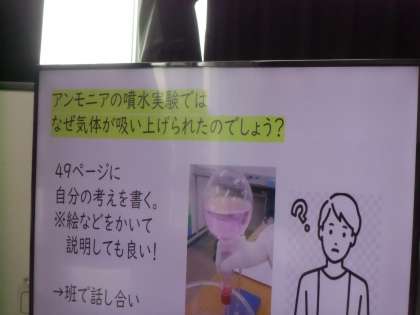 アンモニアの噴水実験では
なぜ気体が吸い上げられたのでしょう?
49ページに
自分の考えを書く。
※絵などをかいて
説明しても良い!
→班で話し合い
?